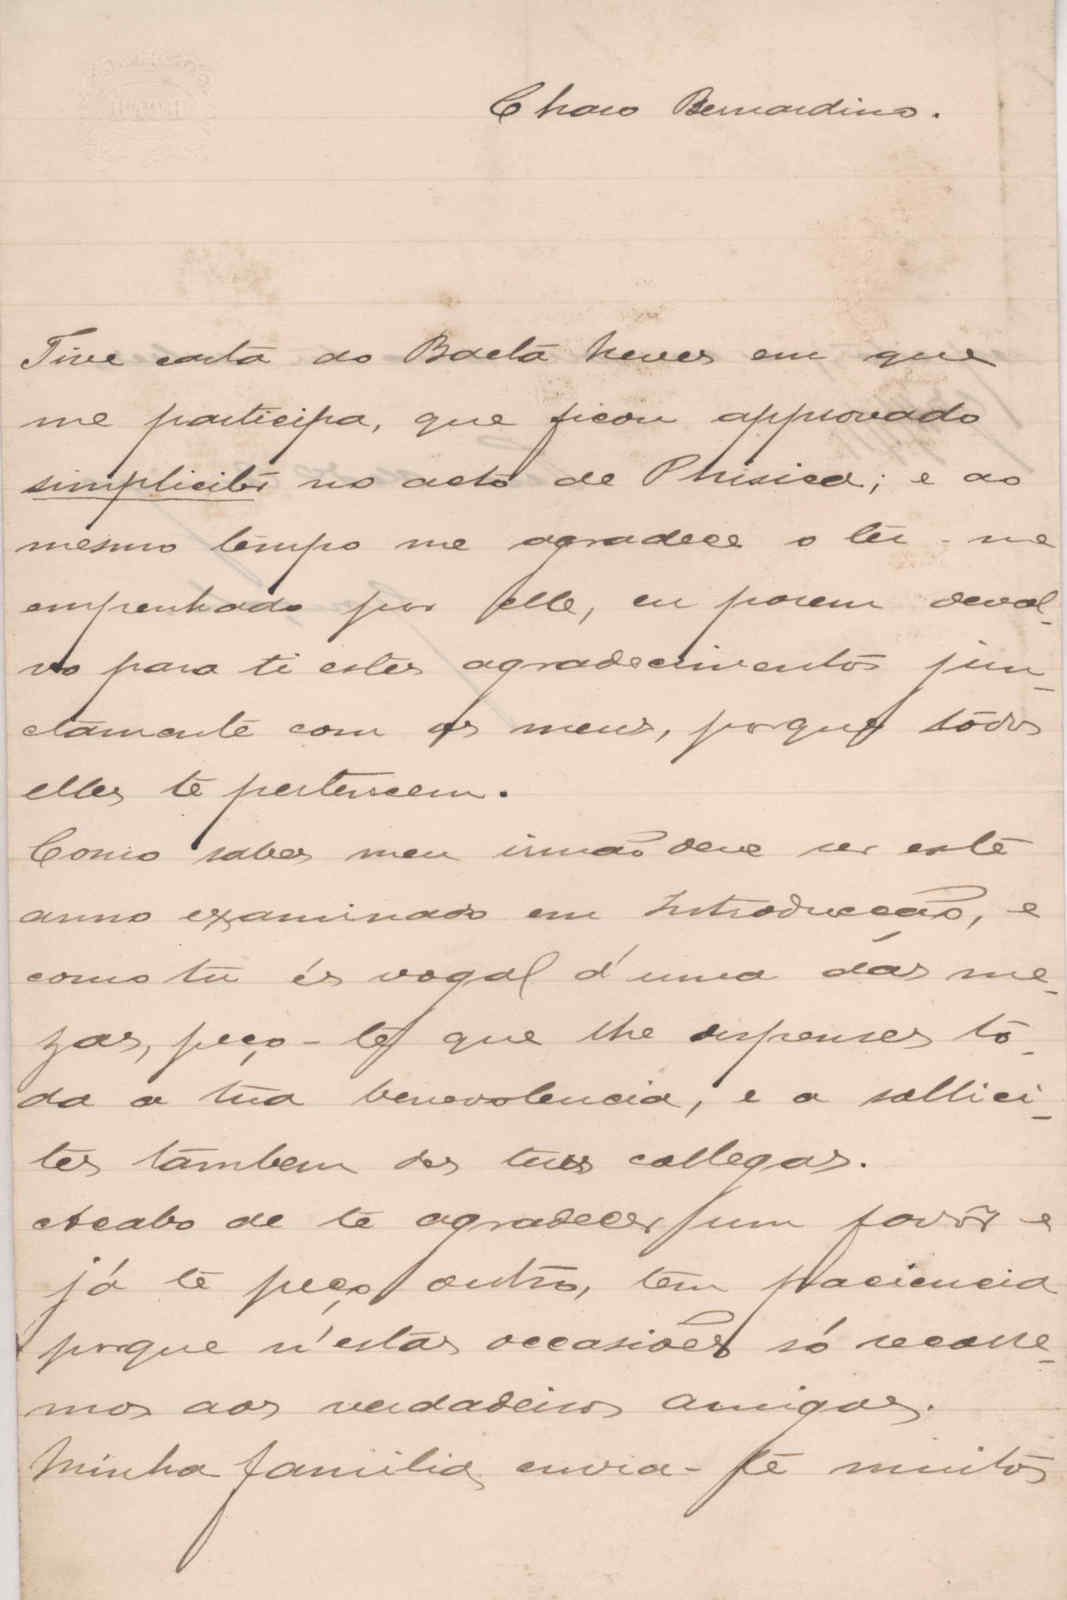 Charo Bernardino.
Tive carta do Baeta Neves em que
me participa, que ficou approvado
simplicitér no acto de Phisica; e ao
mesmo tempo me agradece o ter-me
empenhado por elle, eu porem devol-
vo para ti estes agradecimentos jun-
ctamente com os meus, porque tôdos
elles te pertencem.
Como sabes meu irmão deve ser este
anno examinado em Introducção, e
como tu és vogal d'uma dás me-
zas, peço-te que lhe dispenses tô-
da a tua benevolencia, e a sollici-
tes tâmbem dos teus collegas.
Acabo de te agradecer um favôr e
já te peço outro, tem paciencia
porque n'estas occasiões só recorre-
mos aos verdadeiros amigos.
Minha familia envia-te muitos